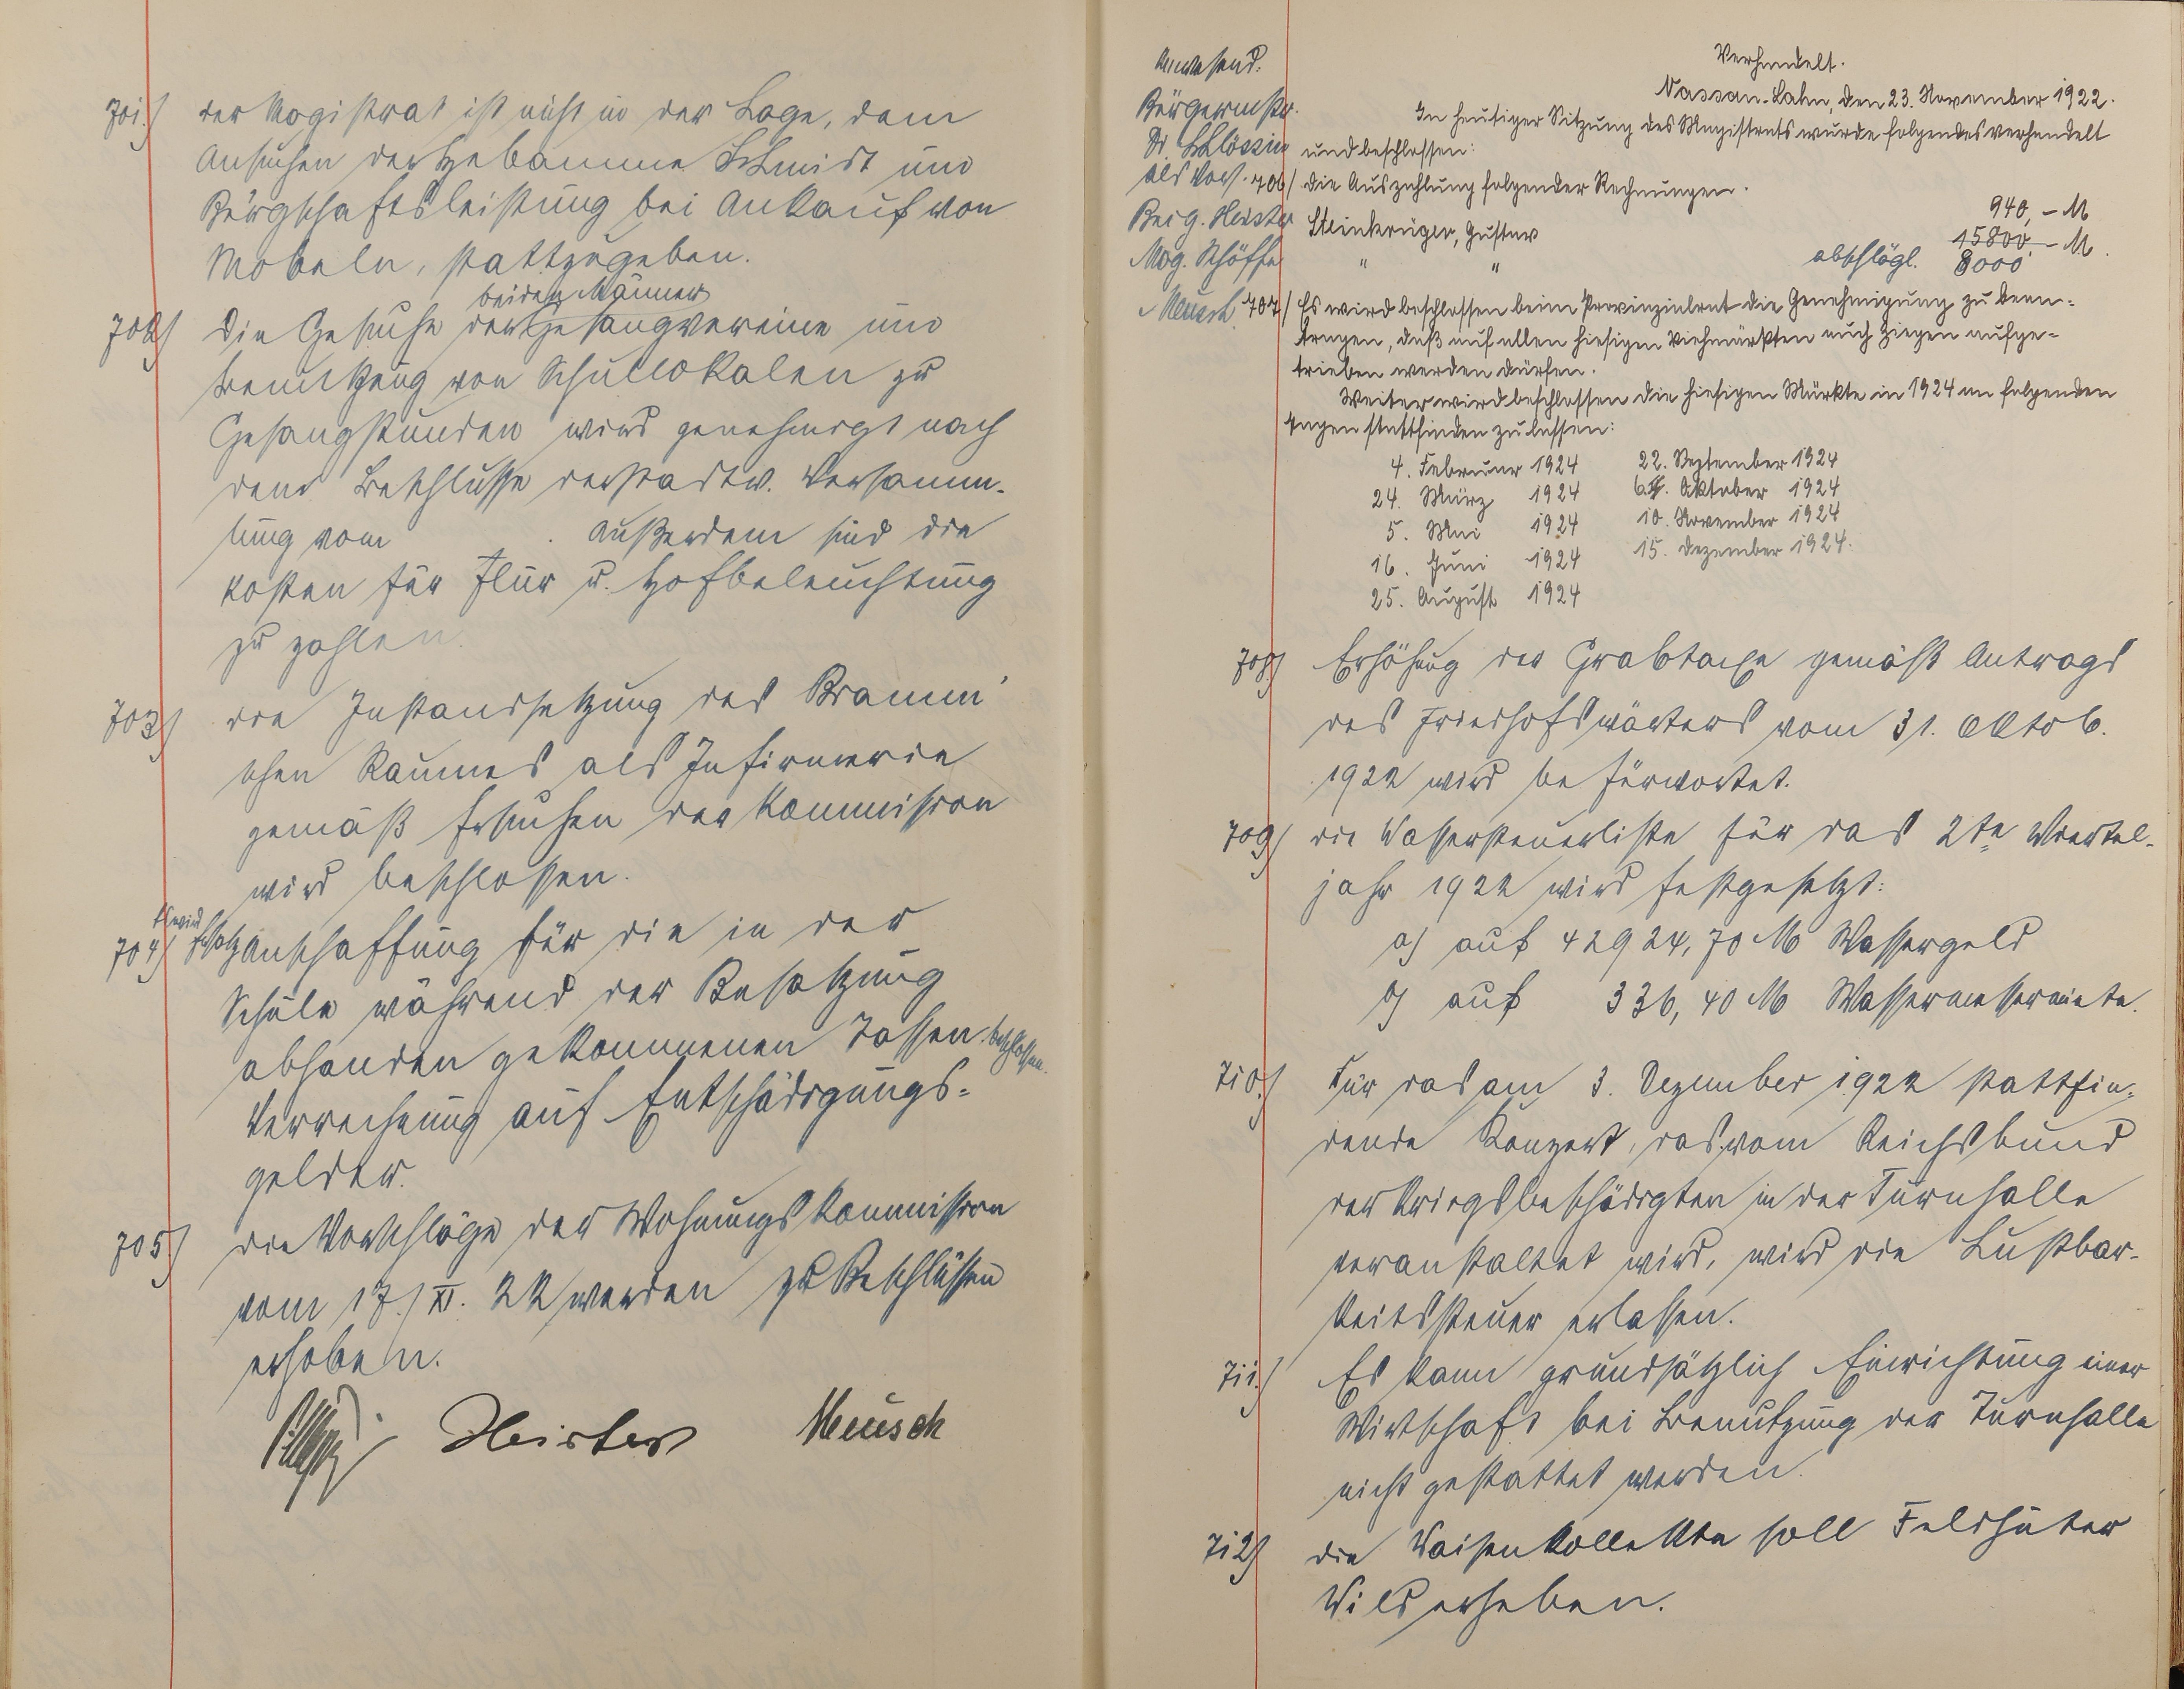 701.) der Magistrat ist nicht in der Lage, dem
Ansuchen der Hebamme Schmidt um
Bürgschaftsleistung bei Ankauf von
Möbeln, stattzugeben.
beiden Männer
702) Die Gesuche der Gesangvereine um
Benutzung von Schullokalen zu
Gesangstunden wird genehmigt nach
dem Beschlusse der Stadtv. Versamm-
lung vom . Außerdem sind die
Kosten für Flur u. Hofbeleuchtung
zu zahlen.
703) die Instandsetzung des Bramm'
schen Raumes als Infirmerie
gemäß Ersuchen der Kommission
wird beschlossen.
Es wird
704) Ersatzanschaffung für die in der
Schule während der Besatzung
abhanden gekommenen Tassen beschlossen.
Verrechnung auf Entschädigungs-
gelder.
705) die Vorschläge der Wohnungskommission
vom 17./XI. 22 werden zu Beschlüssen
erhoben.
Heister Meusch
Anwesend:
Bürgermstr.
Dr. Schlössin
als Vors.
Beig. Heister
Mag. Schöffe
Meusch.
Verhandelt.
Nassau-Lahn, den 23. November 1922.
In heutiger Sitzung des Magistrats wurde folgendes verhandelt
und beschlossen:
706) die Auszahlung folgender Rechnungen.
Steinkrüger, Gustav 940,- M
" " abschlägl. 15800,- M.
8000
707) Es wird beschlossen beim Provinzialrat die Genehmigung zu bean-
tragen, daß auf allen hiesigen Viehmärkten auch Ziegen aufge-
trieben werden dürfen.
Weiter wird beschlossen die hiesigen Märkte in 1924 an folgenden
Tagen stattfinden zu lassen:
4. Februar 1924 22. September 1924
24. März 1924 6. Oktober 1924
5. Mai 1924 10. November 1924
16. Juni 1924 15. Dezember 1924.
25. August 1924
708) Erhöhung der Grabtaxe gemäß Antrags
des Friedhofswärters vom 31. Oktob.
1922 wird befürwortet.
709) die Wassersteuerliste für das 2te Viertel-
jahr 1922 wird festgesetzt:
a) auf 42924,70 M Wassergeld
b) auf 336,40 M Wassermessermiete.
710.) Für das am 3. Dezember 1922 stattfin-
dende Konzert, das vom Reichsbund
der Kriegsbeschädigten in der Turnhalle
veranstaltet wird, wird die Lustbar-
keitssteuer erlassen.
711.) Es kann grundsätzlich Einrichtung einer
Wirtschaft bei Benutzung der Turnhalle
nicht gestattet werden.
712) die Waisenkollekte soll Feldhüter
Wild erheben.